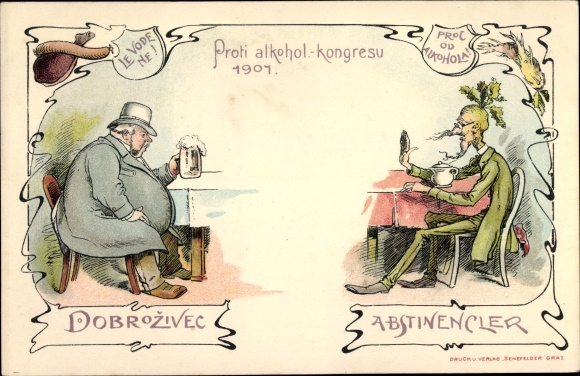 LE VODE
NE!
Proti alkohol.-kongresu
1901.
PROČ
OD
ALKOHOLA!
DOBROŽIVEC
ABSTINENCLER
DRUCK U. VERLAG „SENEFELDER" GRAZ